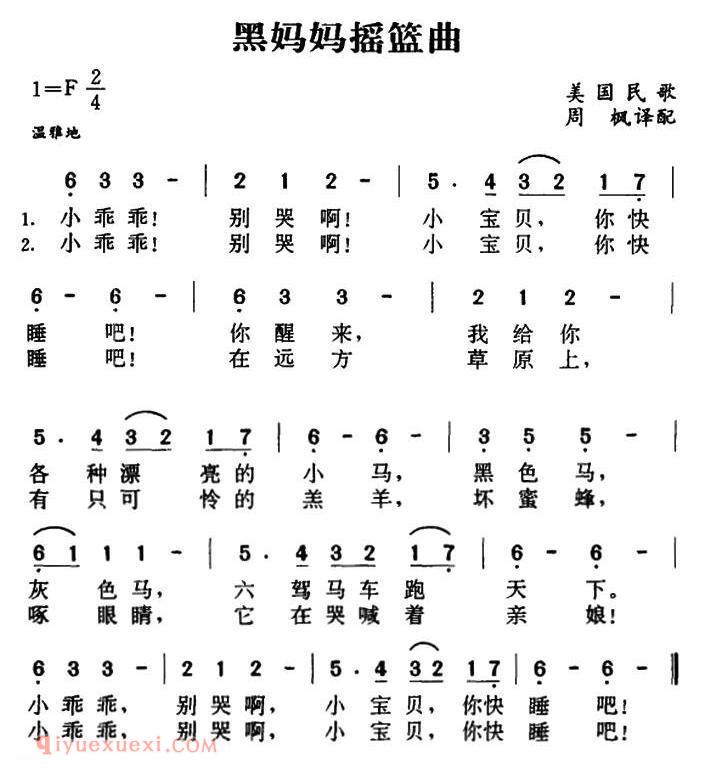 黑妈妈摇篮曲
1=F 2/4
美国民歌
周 枫译配
温雅地
6 3 3 - | 2 1 2 - | 5 . 4 3 2 1 7 |
1. 小乖乖! 别哭啊! 小宝贝,你快
2. 小乖乖! 别哭啊! 小宝贝,你快
6 - 6 - | 6 3 3 - | 2 1 2 - |
睡 吧! 你醒来, 我给你
睡 吧! 在远方 草原上,
5 . 4 3 2 1 7 | 6 - 6 - | 3 5 5 - |
各种漂亮的小马, 黑色马,
有只可怜的羔羊, 坏蜜蜂,
6 1 1 1 - | 5 . 4 3 2 1 7 | 6 - 6 - |
灰色马, 六驾马车跑天下。
啄眼睛, 它在哭喊着亲娘!
6 3 3 - | 2 1 2 - | 5 . 4 3 2 1 7 | 6 - 6 - ‖
小乖乖, 别哭啊, 小宝贝,你快睡吧!
小乖乖, 别哭啊, 小宝贝,你快睡吧!
qiyuexuexi.com